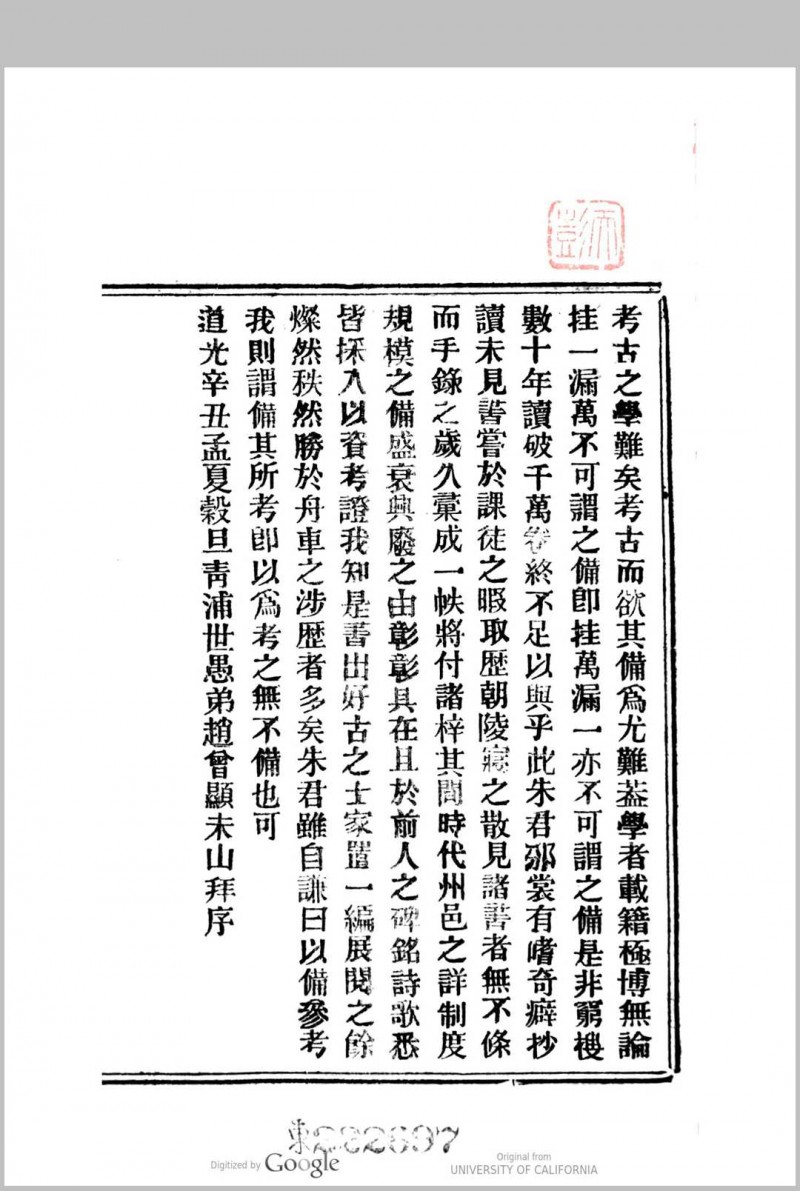 考古之學難矣考古而欲其備爲尤難葢學者載籍極博無論
挂一漏萬不可謂之備卽挂萬漏一亦不可謂之備是非窮搜
數十年讀破千萬卷終不足以與乎此朱君邠裳有嗜奇癖抄
讀未見書嘗於課徒之暇取歷朝陵寢之散見諸書者無不條
而手錄之歲久稾成一帙將付諸梓其閒時代州邑之詳制度
規模之備盛衰興廢之由彰彰具在且於前人之碑銘詩歌悉
皆採入以資考證我知是書出好古之士家置一編展閱之餘
燦然秩然勝於舟車之涉歷者多矣朱君雖自謙曰以備參考
我則謂備其所考卽以爲考之無不備也可
道光辛丑孟夏穀旦靑浦世愚弟趙曾顯未山拜序
東232697
Digitized by Google
Original from
UNIVERSITY OF CALIFORNIA